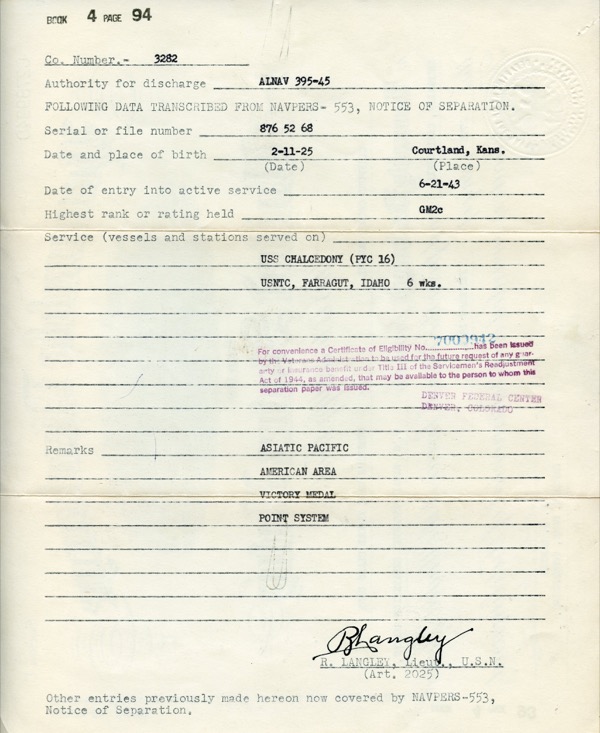 BOOK 4 PAGE 94
Co. Number.- 3282
Authority for discharge ALNAV 395-45
FOLLOWING DATA TRANSCRIBED FROM NAVPERS- 553, NOTICE OF SEPARATION.
Serial or file number 876 52 68
Date and place of birth 2-11-25 Courtland, Kans.
(Date) (Place)
Date of entry into active service 6-21-43
Highest rank or rating held GM2c
Service (vessels and stations served on)
USS CHALCEDONY (PYC 16)
USNTC, FARRAGUT, IDAHO 6 wks.
For convenience a Certificate of Eligibility No. has been issued
by the Veterans Administration to be used for the future request of any guar-
anty or insurance benefit under Title III of the Servicemen's Readjustment
Act of 1944, as amended, that may be available to the person to whom this
separation paper was issued.
DENVER FEDERAL CENTER
DENVER, COLORADO
Remarks ASIATIC PACIFIC
AMERICAN AREA
VICTORY MEDAL
POINT SYSTEM
R Langley
R. LANGLEY, Lieut., U.S.N.
(Art. 2025)
Other entries previously made hereon now covered by NAVPERS-553,
Notice of Separation.